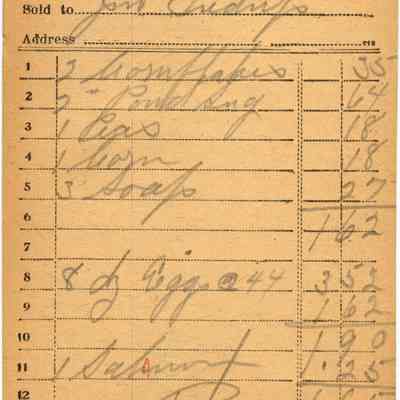 Sold to Jno
Address
1 2 Cornflakes 35
2 2 " Pond Sug 64
3 1 Peas 18
4 1 Corn 18
5 3 Soaps 27
6 1 62
7
8 8 dz Eggs @ 44 3 52
9 1 62
10 1 90
11 1 Salmon 1.25
12